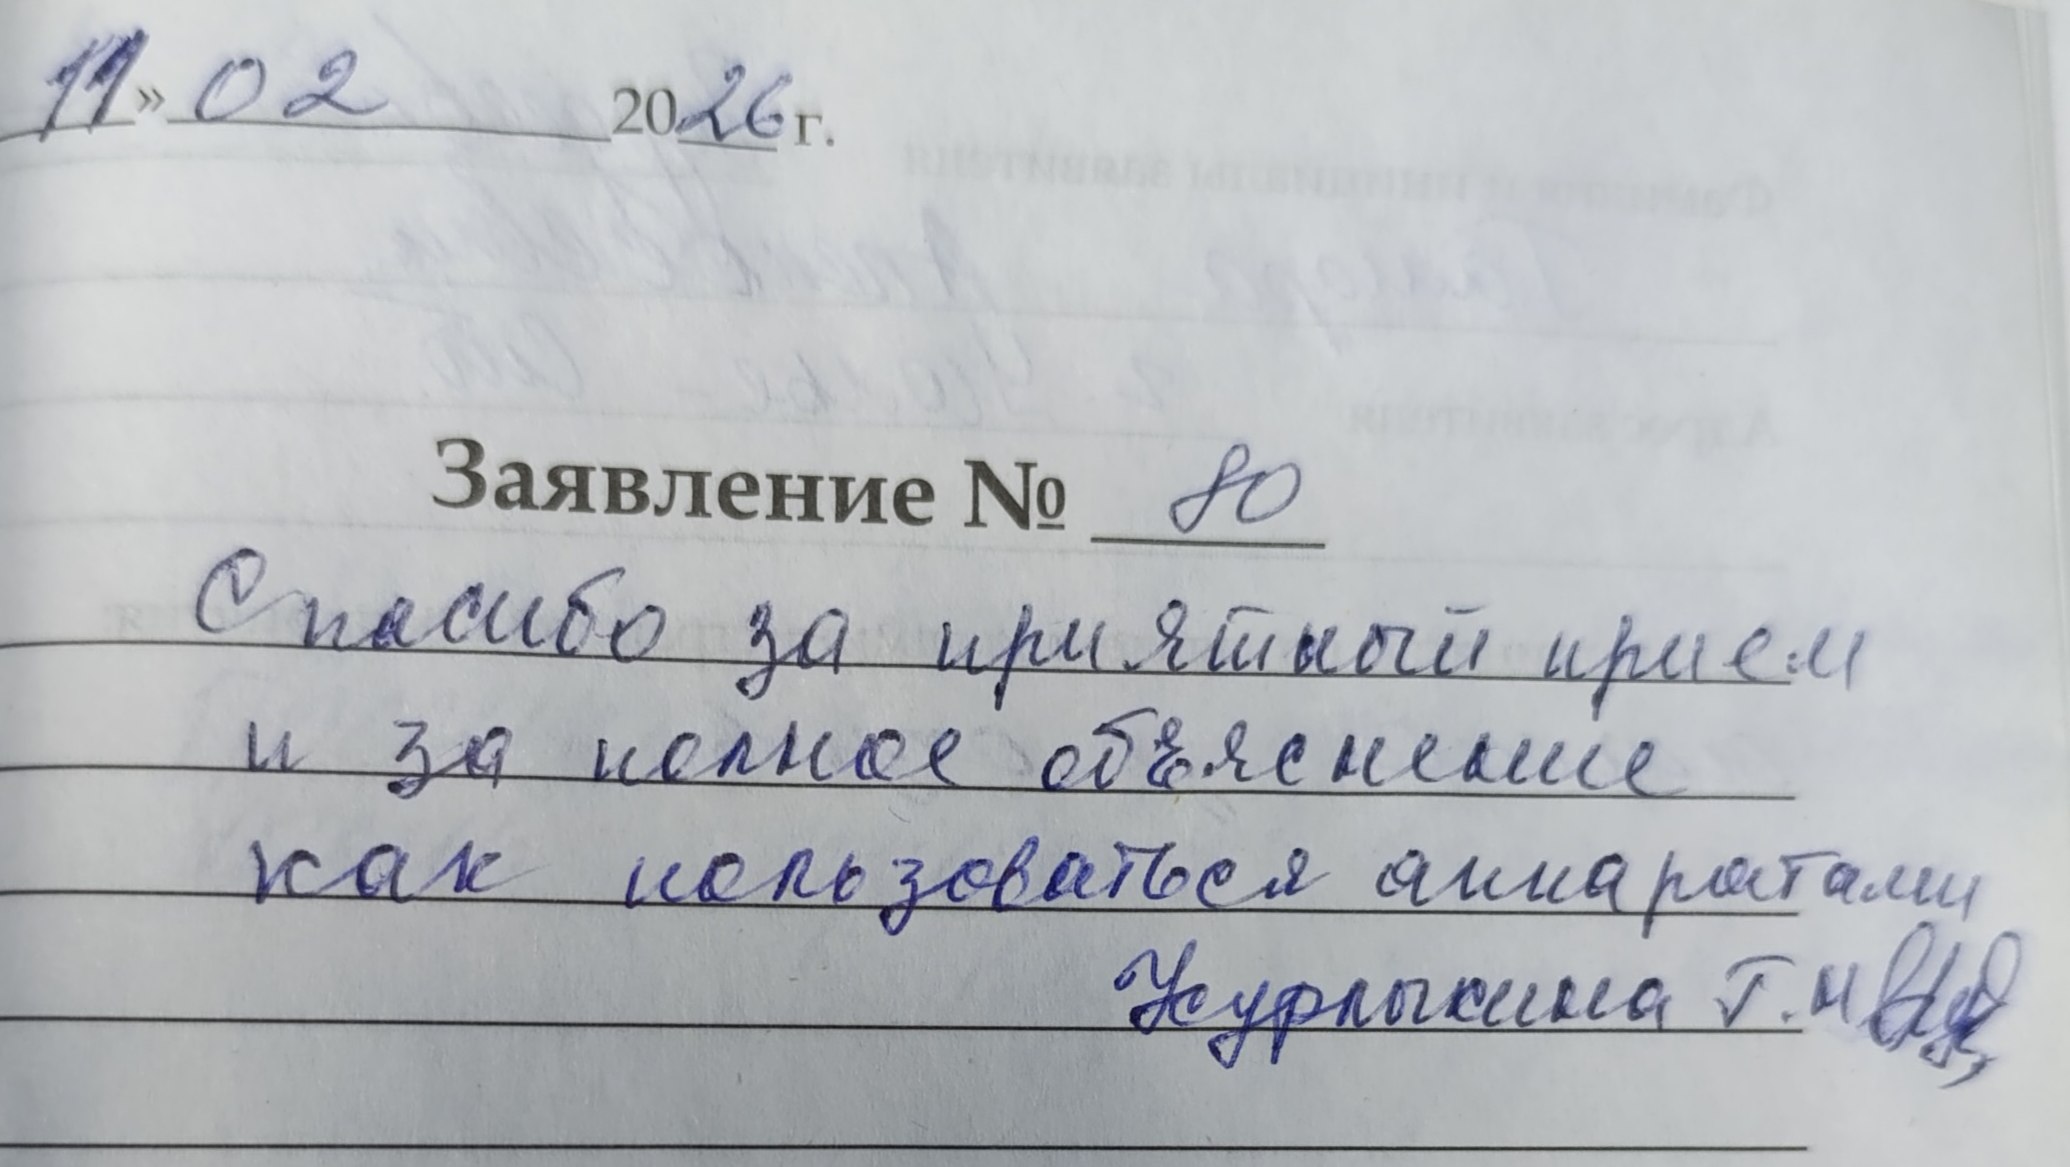 11» 02 2026 г.
Заявление № 80
Спасибо за приятный прием
и за полное объяснение
как пользоваться аппаратами
Журлыкина Г.Н